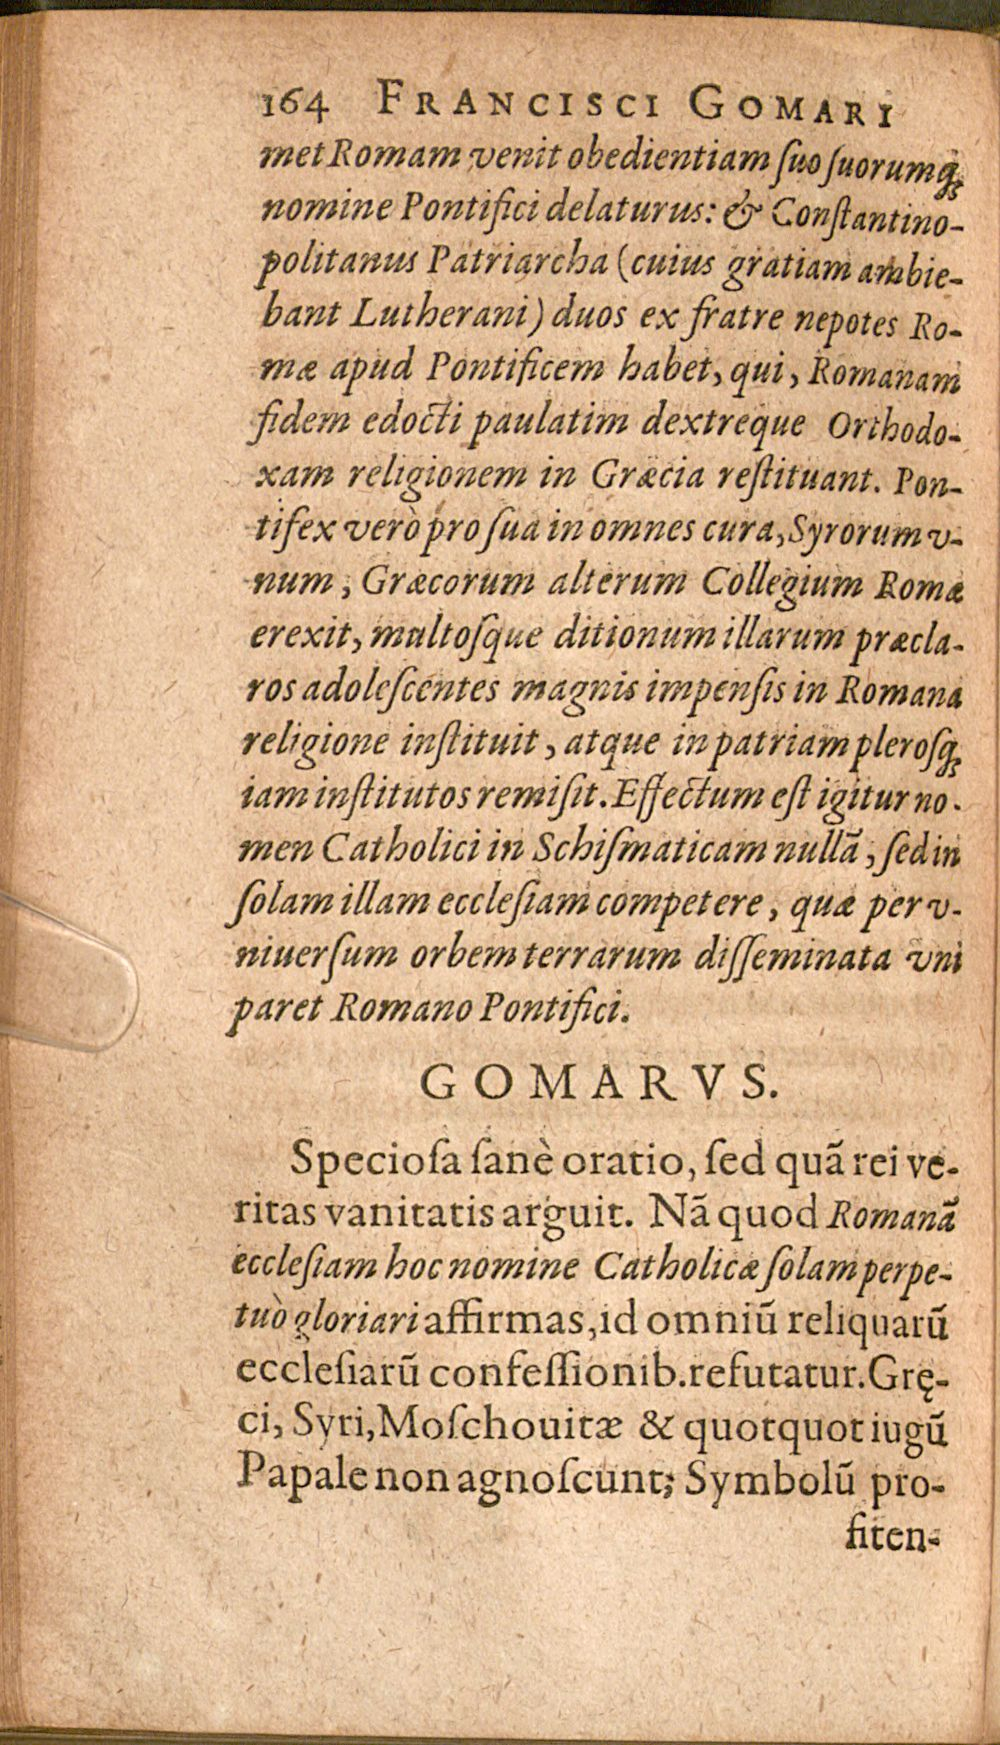 164 FRANCISCI GOMARI
met Romam venit obedientiam ſuo ſuorumq́;
nomine Pontifici delaturus: & Conſtantino-
politanus Patriarcha (cuius gratiam ambie-
bant Lutherani) duos ex fratre nepotes Ro-
mæ apud Pontificem habet, qui, Romanam
fidem edocti paulatim dextreque Orthodo-
xam religionem in Græcia reſtituant. Pon-
tifex verò pro ſua in omnes cura, Syrorum v-
num, Græcorum alterum Collegium Romæ
erexit, multoſque ditionum illarum præcla-
ros adoleſcentes magnis impenſis in Romana
religione inſtituit, atque in patriam pleroſq́;
iam inſtitutos remiſit. Effectum eſt igitur no-
men Catholici in Schiſmaticam nullã, ſed in
ſolam illam eccleſiam competere, quæ per v-
niuerſum orbem terrarum diſſeminata vni
paret Romano Pontifici.
GOMARVS.
Specioſa ſanè oratio, ſed quã rei ve-
ritas vanitatis arguit. Nã quod Romanã
eccleſiam hoc nomine Catholicæ ſolam perpe-
tuò gloriari affirmas, id omniũ reliquarũ
eccleſiarũ confeſſionib. refutatur. Grę-
ci, Syri, Moſchouitæ & quotquot iugũ
Papale non agnoſcunt; Symbolũ pro-
fiten-